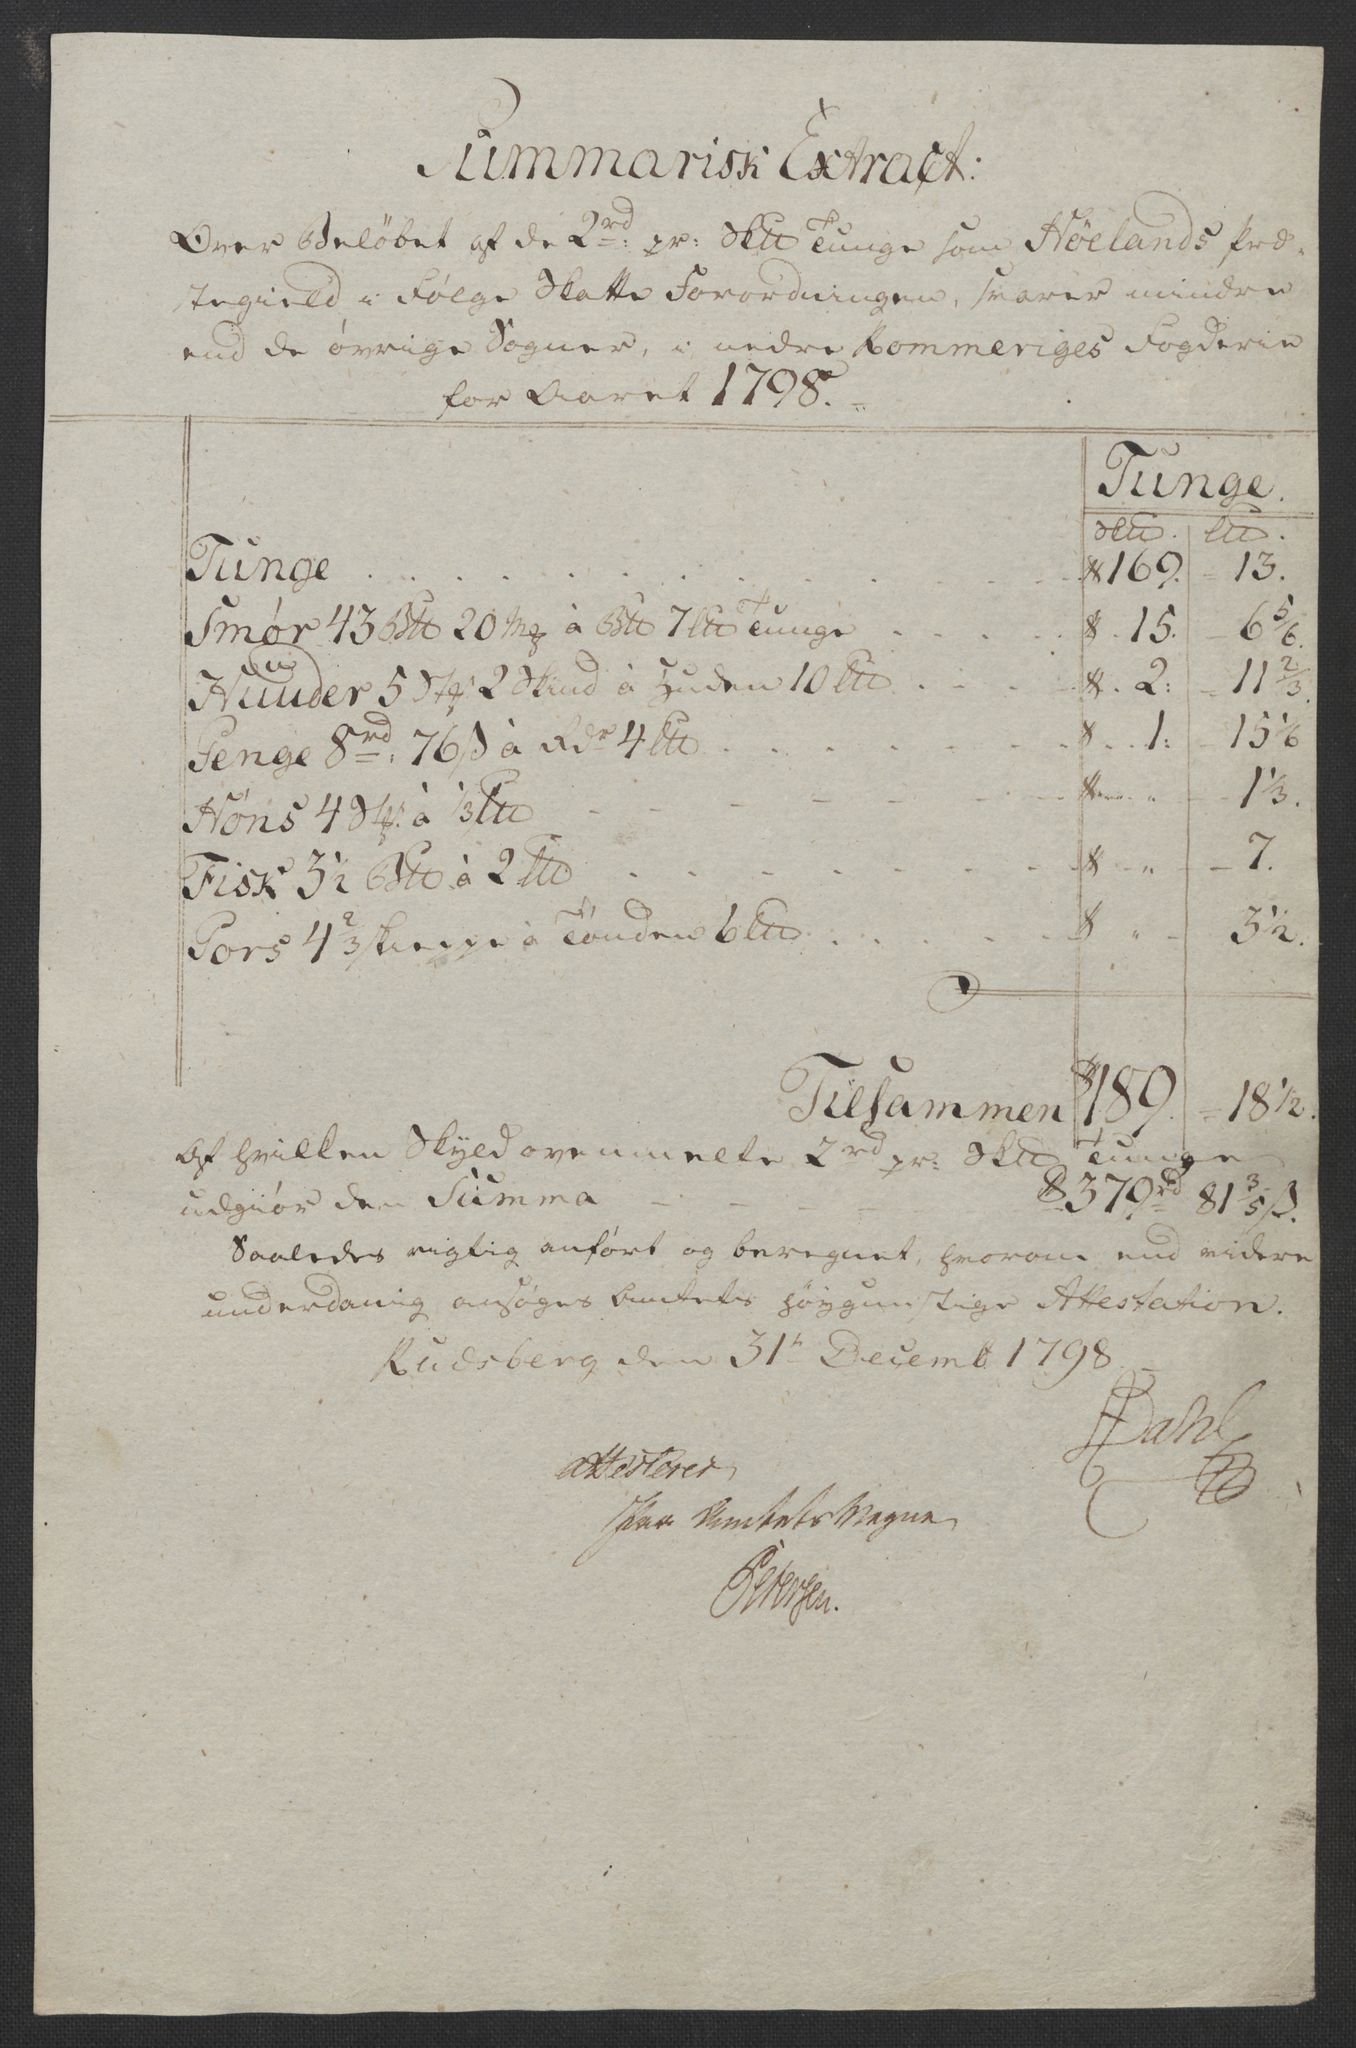 Summarisk Extract:
Over Beløbet af de 2rd: pr: Sk℔ Tunge som Høelands Præ-
stegield i Følge Skatte Forordningen, svarer mindre
end de øvrige Sogner, i nedre Rommeriges Fogderie
for Aaret 1798.
Tunge.
Sk℔. L℔.
Tunge . . . . . . . . . . 169. = 13.
Smør 43 B℔ 20 mk à B℔ 7 L℔ Tunge . . . . 15. - 6 5/6.
Huuder 5 Stk: 2 Skind à Huden 10 L℔ . . . . 2: - 11 2/3.
Penge 8rd: 76 ß à Rdr 4 L℔ . . . . . . 1: - 15 1/6
Høns 4 Stk: à 1/3 L℔ - - - - - - " - 1 1/3.
Fisk 3 1/2 B℔ à 2 L℔ . . . . . . " - 7.
Pors 4 2/3 skieppe à Tønden 6 L℔ . . . . . " - 3 1/2.
Tilsammen 189. = 18 1/2.
Af hvilken Skyld ovenmelte 2rd pr: Sk℔ Tunge
udgiør den Summa - - - - 379rd 81 3/5 ß.
Saaledes rigtig anført og beregnet, hvorom end videre
underdanig ansøges Amtets høygunstige Attestation.
Rudsberg den 31te Decemb 1798
Dahl
Attesterer
paa Amtets Vegne
Petersen.